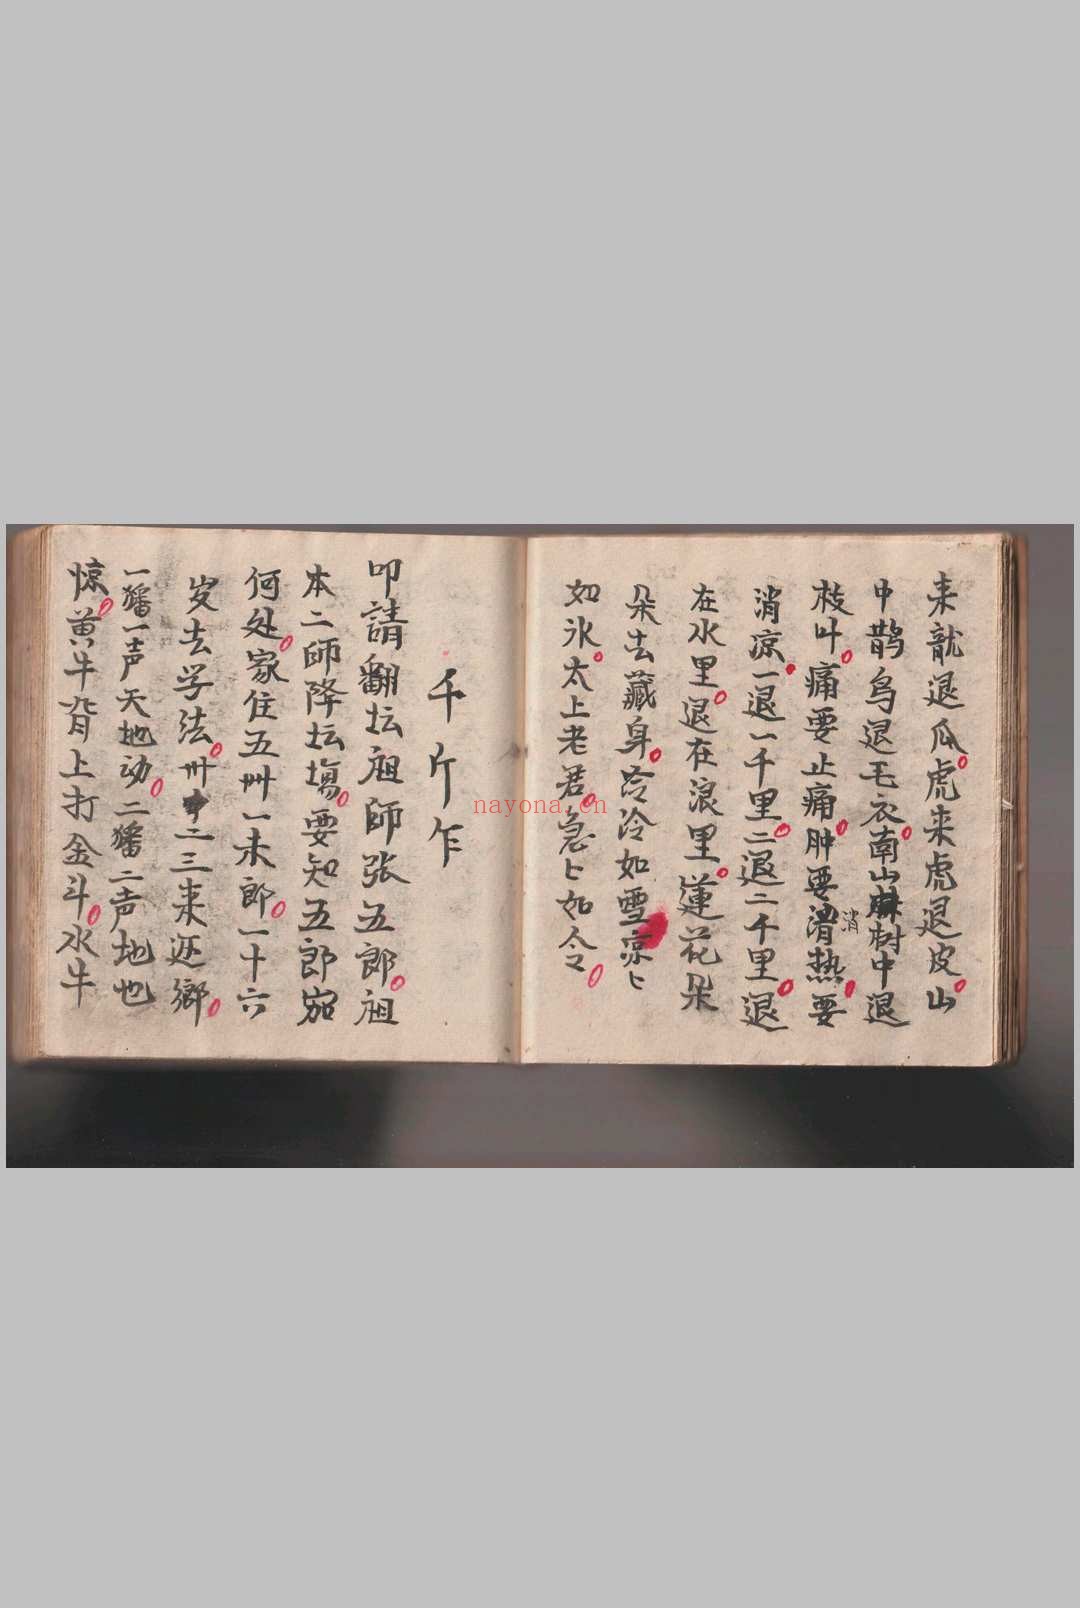 来龍退瓜。虎来虎退皮。山
中鹊鸟退毛衣。南山树中退
枝叶。痛要止痛。肿要消热。要
消凉。一退一千里。二退二千里。退
在水里。退在浪里。蓮花朵
朵去藏身。冷冷如雪凉〻
如氷。太上老君。急〻如令。
千斤乍
叩請翻坛祖師张五郎。祖
本二師降坛塲。要知五郎
何处。家住五州一未郎。一十六
岁去学法。卅二三来还鄉。
一獦一声天地动。二獦二声地也
惊。黄牛背上打金斗。水牛
nayona.cn